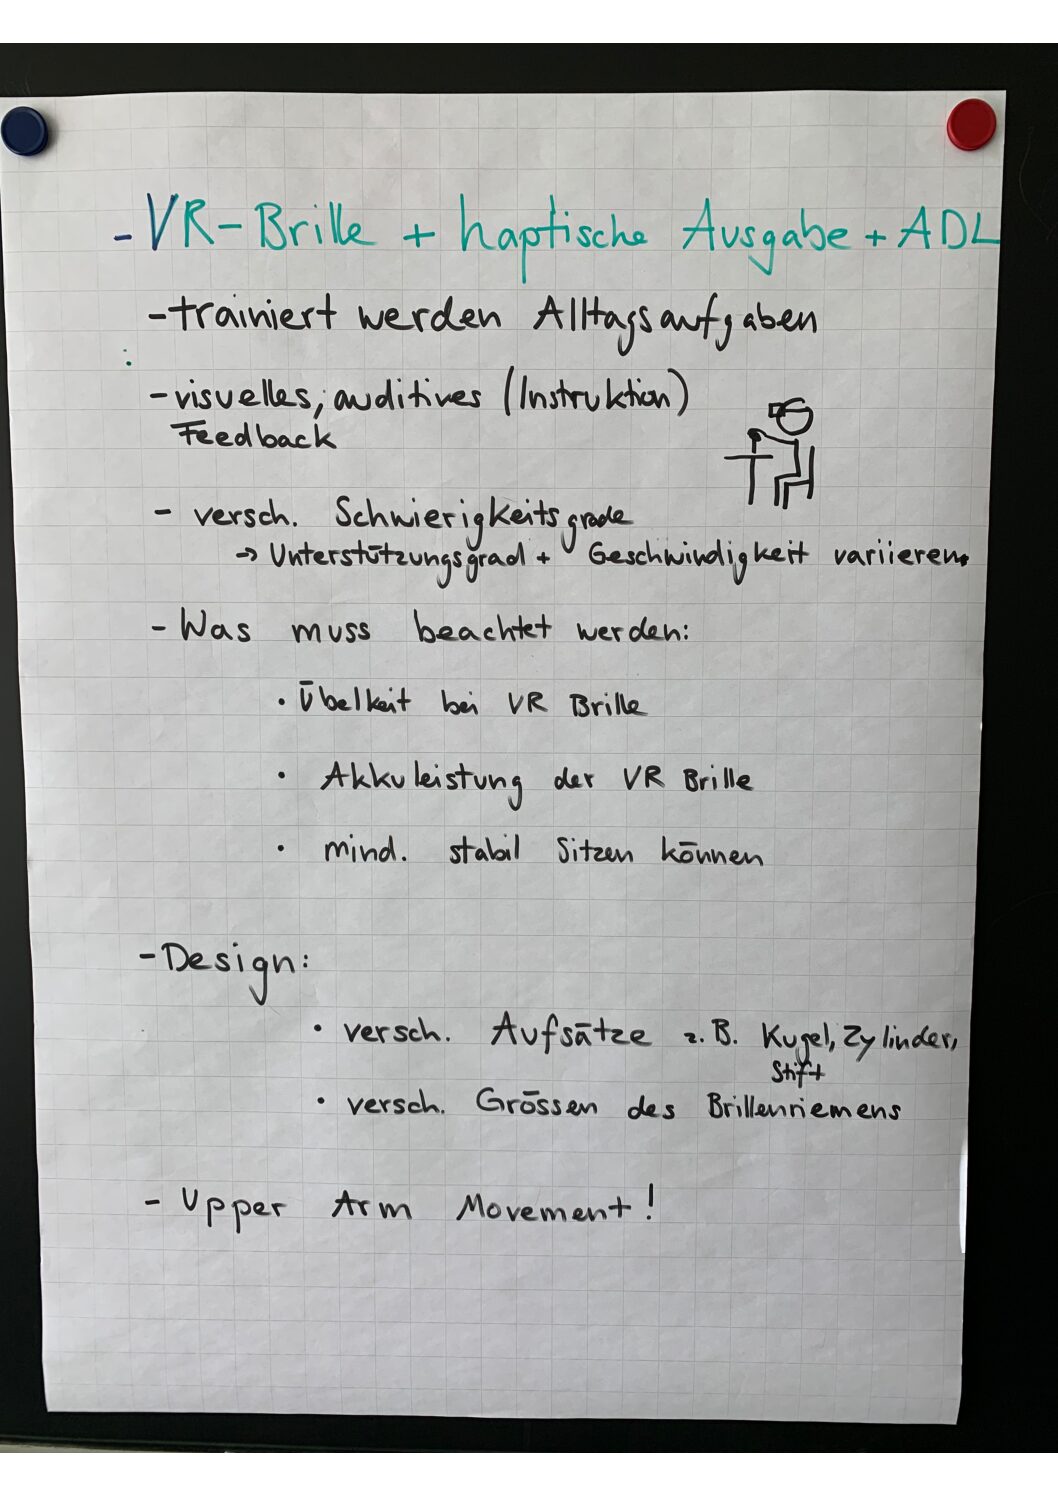 - VR-Brille + haptische Ausgabe + ADL
- trainiert werden Alltagsaufgaben
- visuelles, auditives (Instruktion)
Feedback
- versch. Schwierigkeitsgrade
→ Unterstützungsgrad + Geschwindigkeit variieren.
- Was muss beachtet werden:
• Übelkeit bei VR Brille
• Akkuleistung der VR Brille
• mind. stabil Sitzen können
- Design:
• versch. Aufsätze z.B. Kugel, Zylinder,
Stift
• versch. Grössen des Brillenriemens
- Upper Arm Movement!